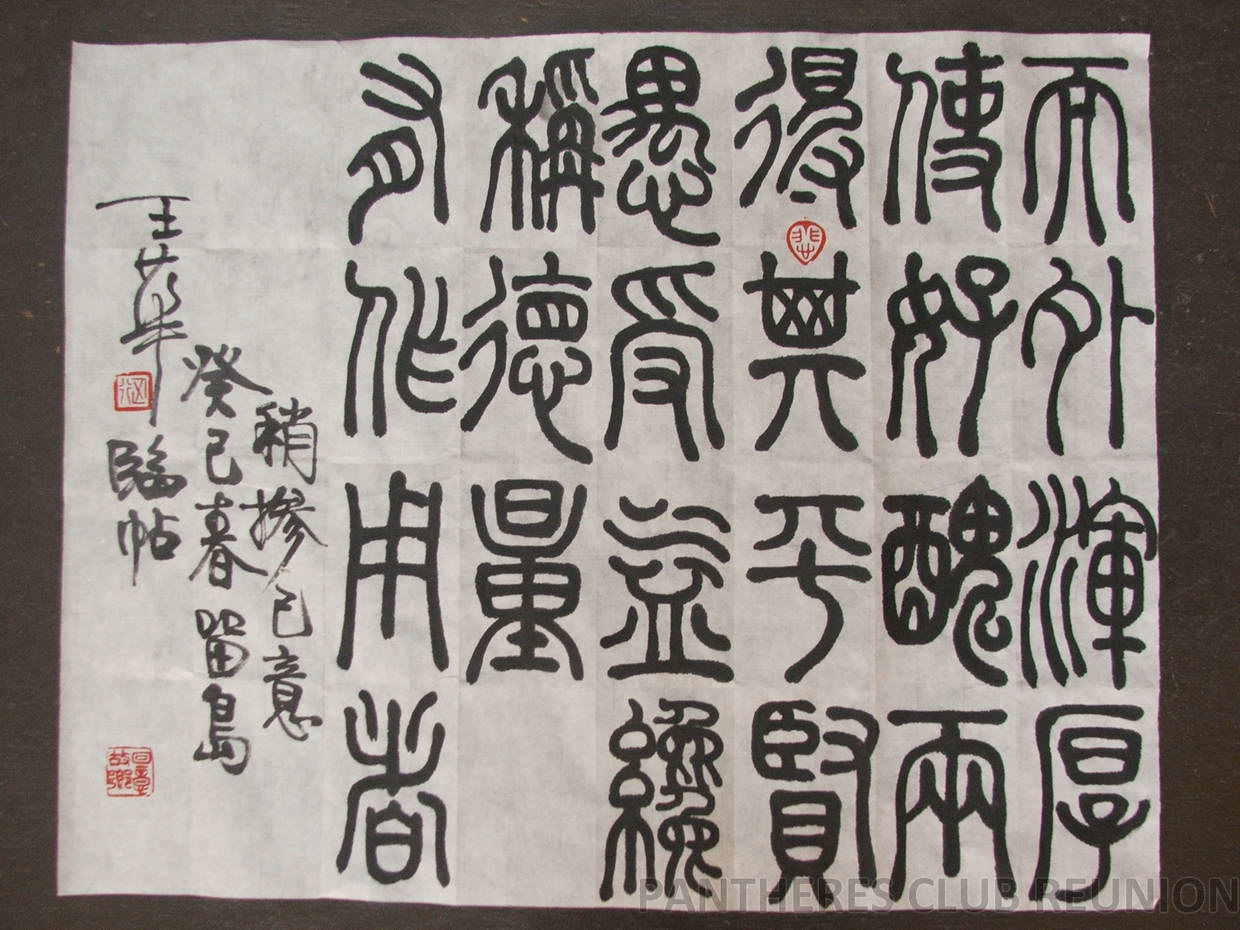 而外渾厚
使好醜兩
得其平賢
愚受益纔
稱德量
有作用者
稍摻己意
癸巳春留島
王華臨帖
PANTHERES CLUB REUNION